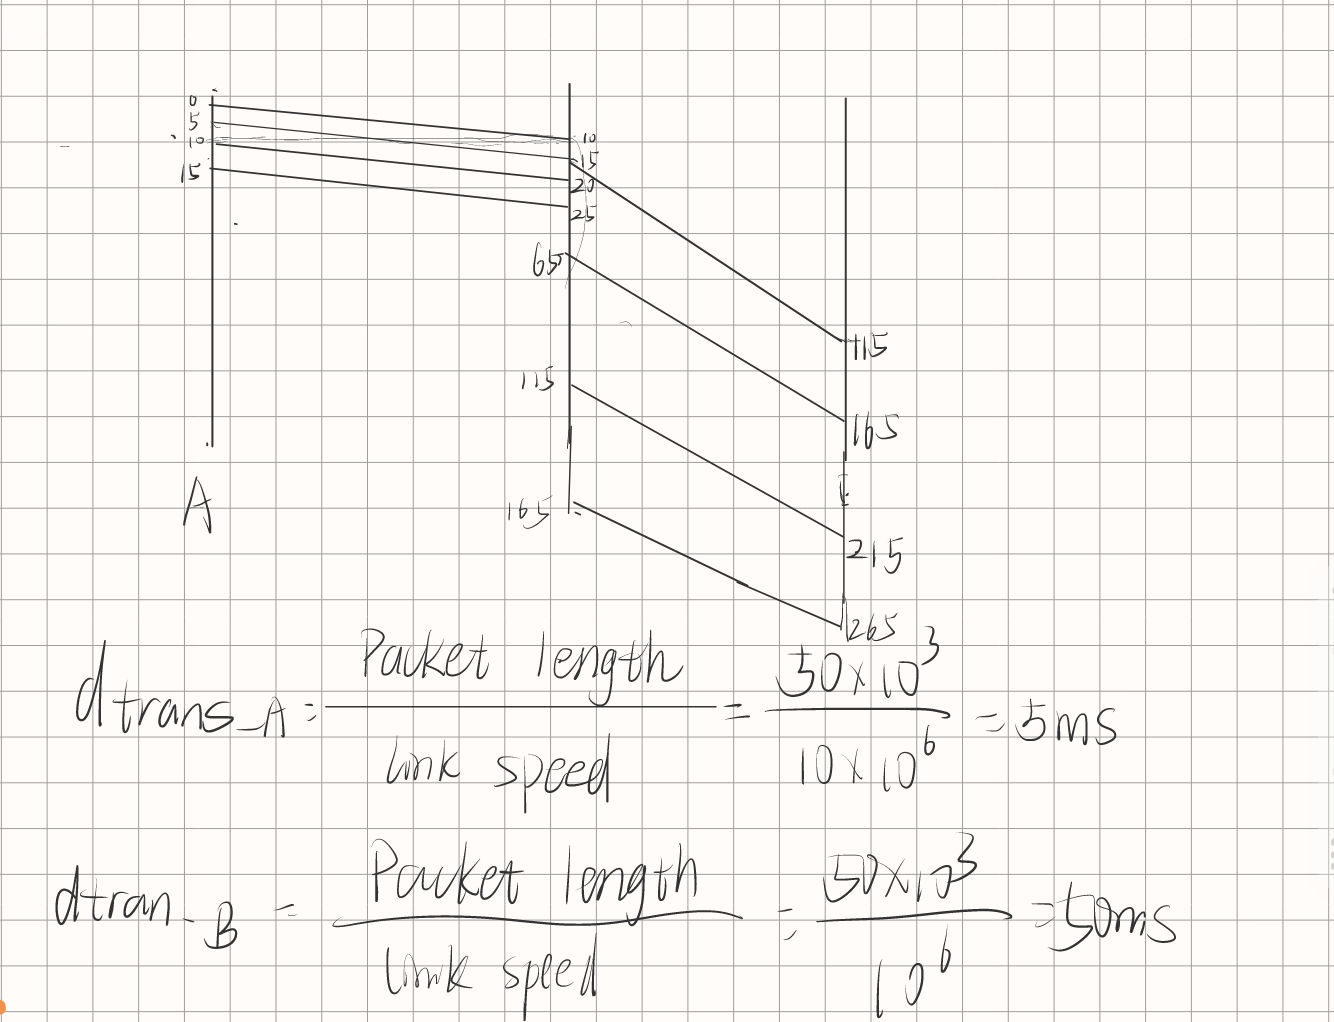 0
5
10
10
15
15
20
25
65
115
115
165
165
A
215
265
dtrans_A = Packet length / Link speed = 50×10³ / 10×10⁶ = 5ms
dtran_B = Packet length / Link speed = 50×10³ / 10⁶ = 50ms